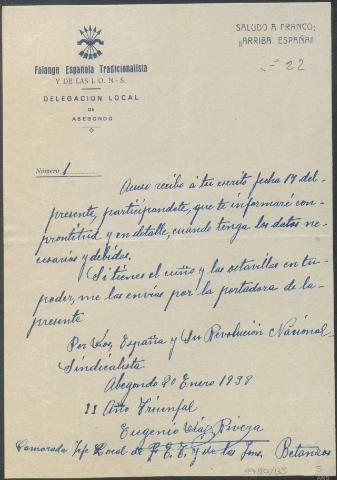 SALUDO A FRANCO:
¡¡ARRIBA ESPAÑA!!
Nº 22
Falange Española Tradicionalista
Y DE LAS J. O. N - S.
DELEGACION LOCAL
DE
ABEGONDO
Número 1
Acuso recibo á tu escrito fecha 14 del-
presente, participandote, que te informaré con-
prontitud y en detalle, cuando tenga los datos ne-
cesarios y debidos.
Si tienes el cuño y las octavillas en tu-
poder, me las envías por la portadora de la-
presente
Por Dios, España y Su Revolución Nacional-
Sindicalista
Abegondo 20 Enero 1938
II Año Triunfal
Eugenio Díaz Rivera
Camarada Jefe Local de F. E. T. y de las Jons. Betanzos